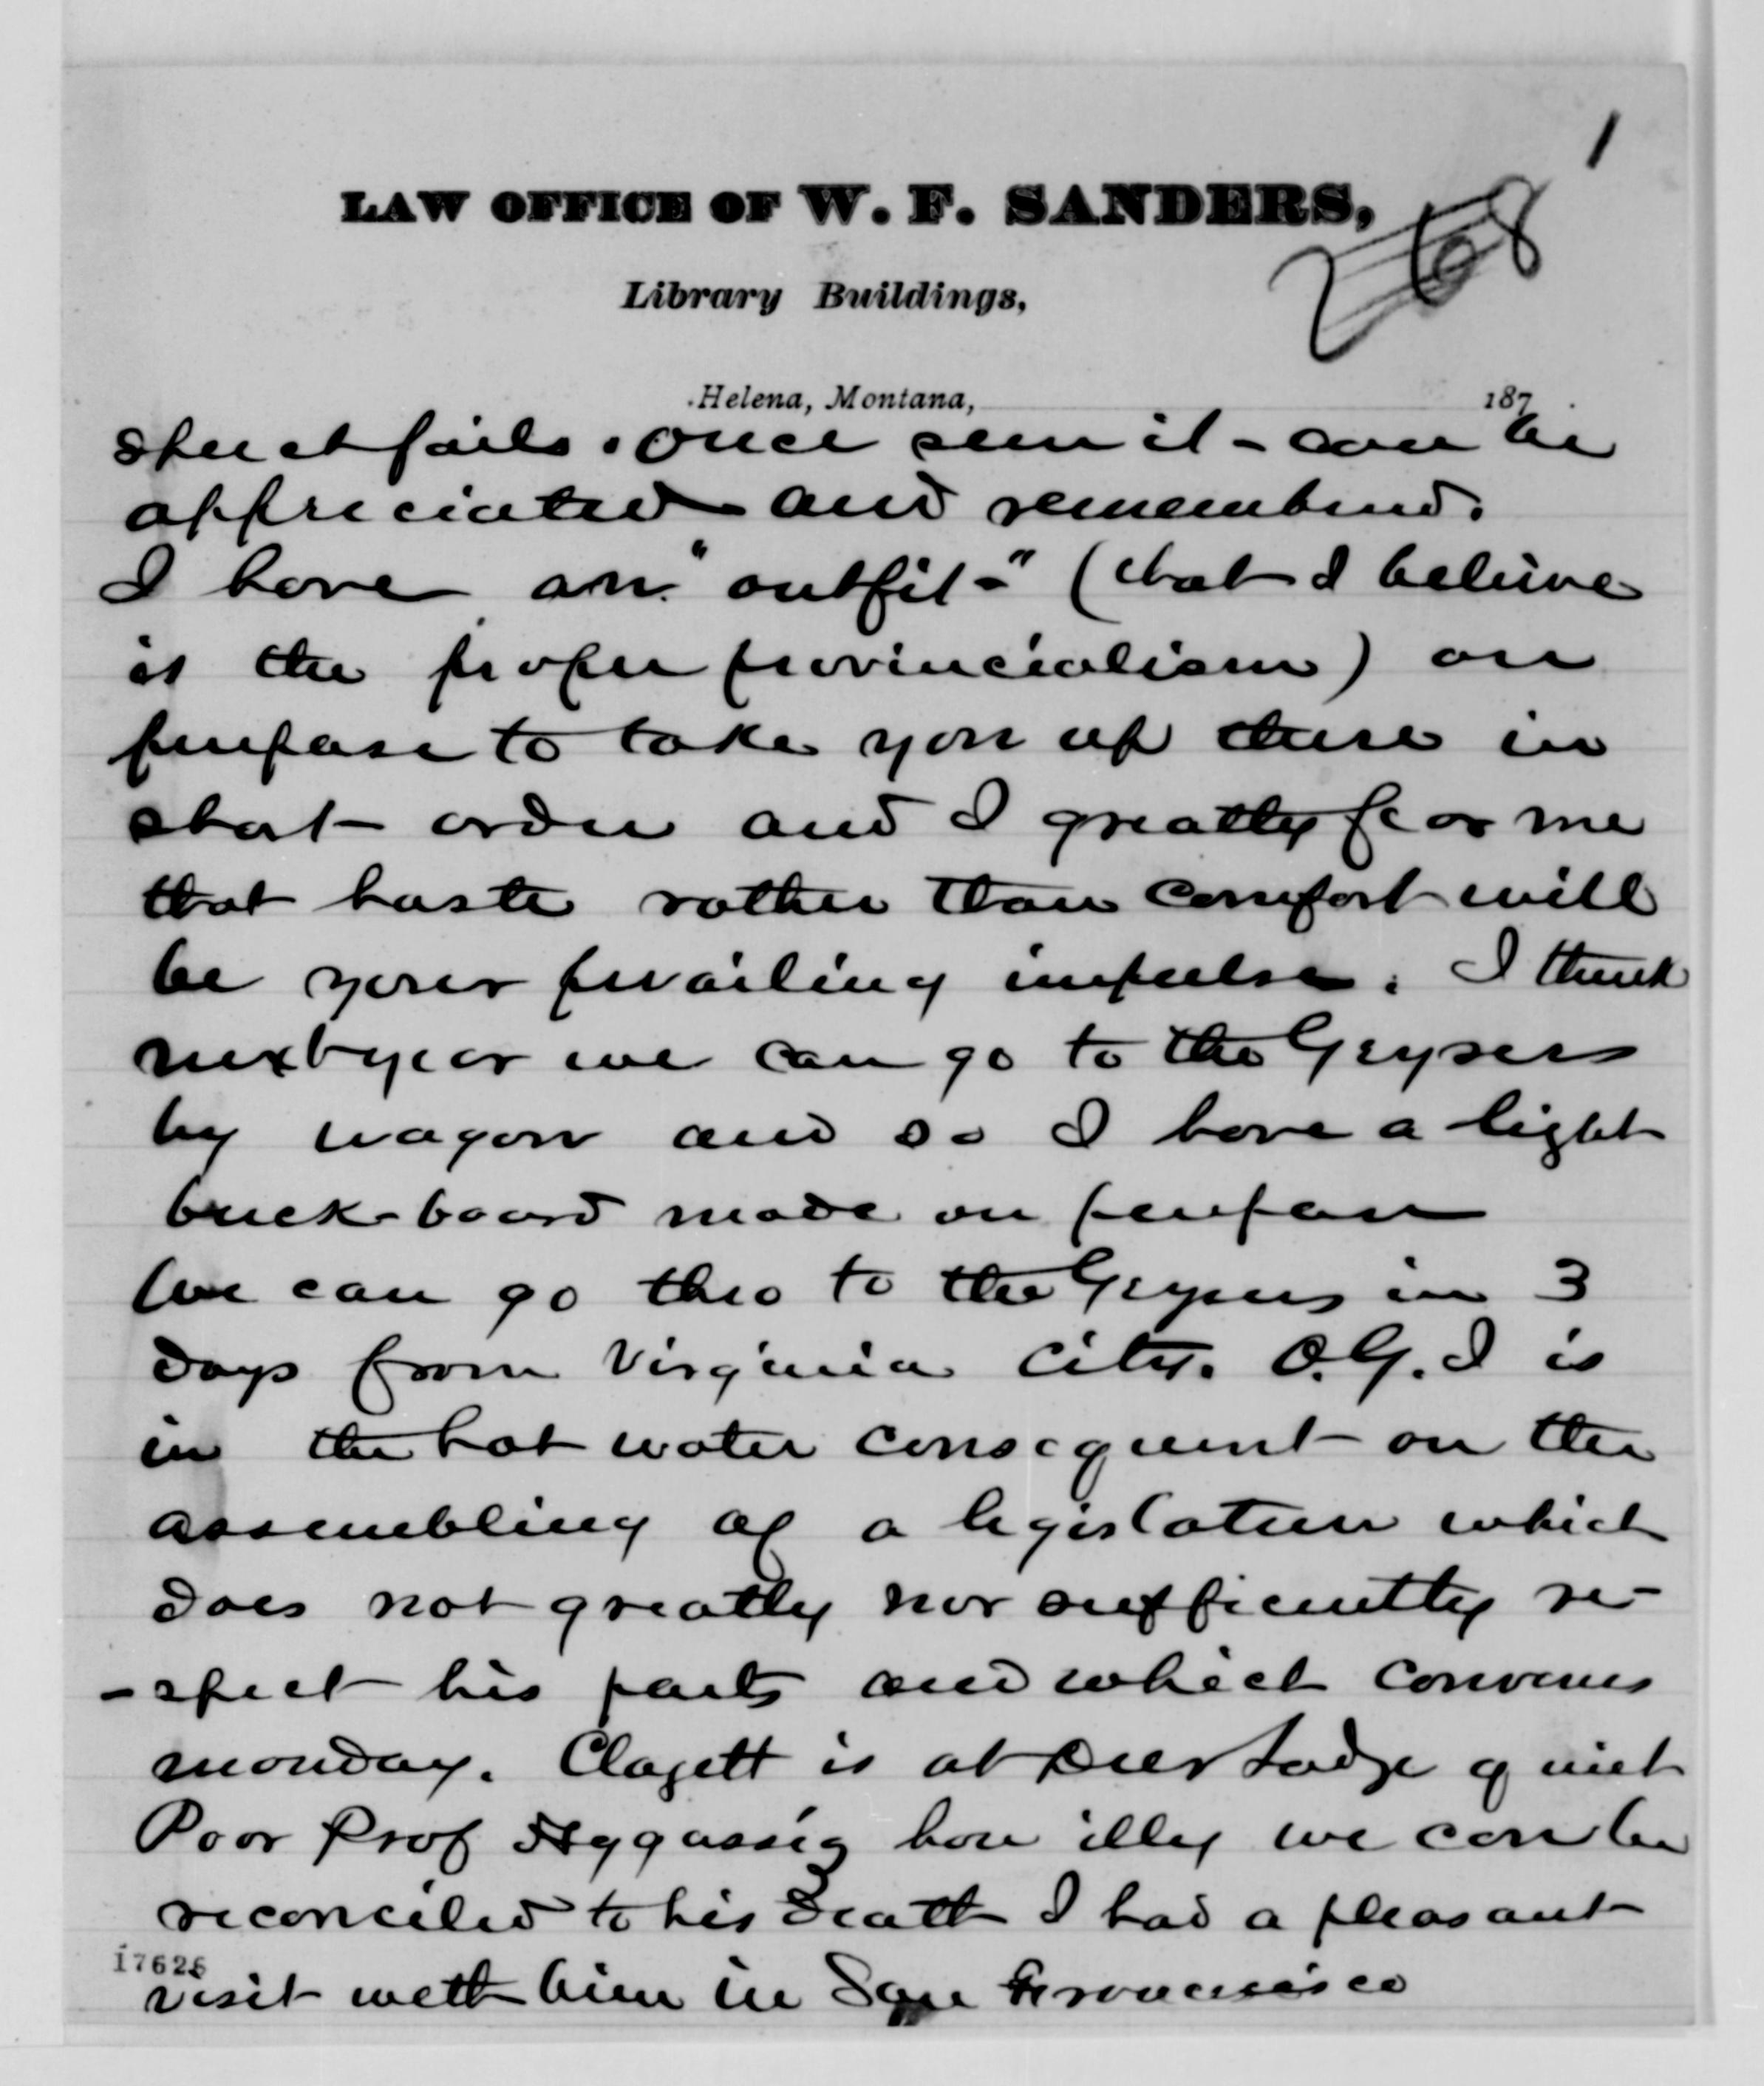 1
LAW OFFICE OF W. F. SANDERS,
268
Library Buildings,
Helena, Montana, 187
speech fails. Once seen it can be
appreciated and remembered.
I have an "outfit" (that I believe
is the proper provincialism) on
purpose to take you up there in
short order and I greatly fear me
that haste rather than comfort will
be your prevailing impulse. I think
next year we can go to the Geysers
by wagon and so I have a light
buck-board made on purpose
We can go thro to the Geysers in 3
days from Virginia City. O.G.I is
in the hot water consequent on the
assembling of a legislature which
does not greatly nor sufficiently re-
-spect his parts and which convenes
monday. Clagett is at Deer Lodge quiet
Poor Prof Aggassiz how illy we can be
reconciled to his death I had a pleasant
17626
visit with him in San Francisco